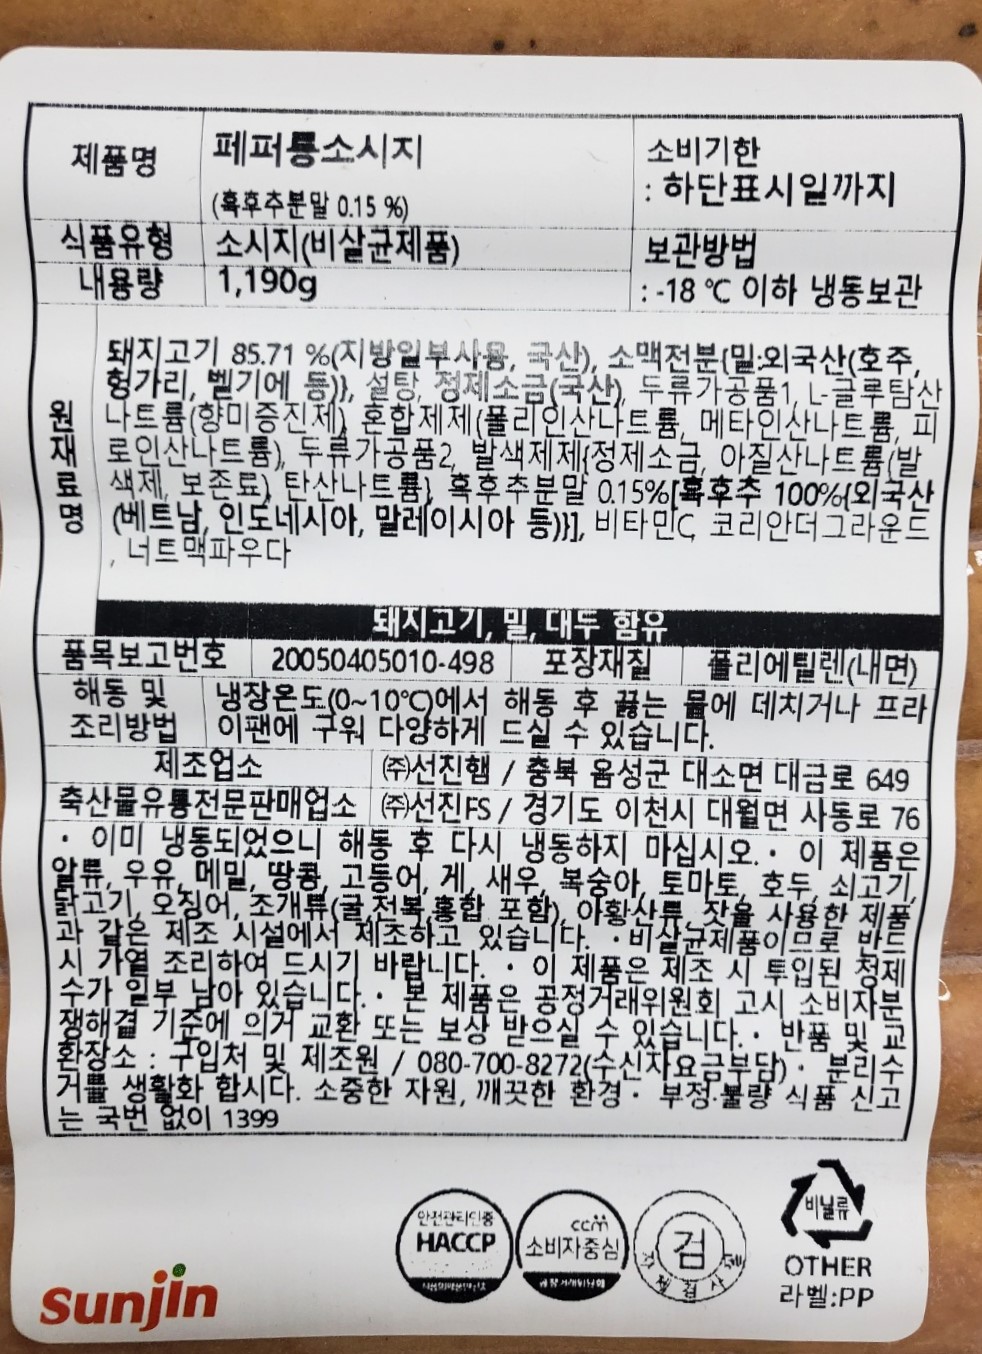 제품명
페퍼롱소시지
(흑후추분말 0.15 %)
소비기한
: 하단표시일까지
식품유형
소시지(비살균제품)
내용량
1,190g
보관방법
: -18 ℃ 이하 냉동보관
원재료명
돼지고기 85.71 %(지방일부사용, 국산), 소맥전분{밀:외국산(호주,
헝가리, 벨기에 등)}, 설탕, 정제소금(국산), 두류가공품1, L-글루탐산
나트륨(향미증진제), 혼합제제(폴리인산나트륨, 메타인산나트륨, 피
로인산나트륨), 두류가공품2, 발색제제{정제소금, 아질산나트륨(발
색제, 보존료), 탄산나트륨}, 흑후추분말 0.15%[흑후추 100%{외국산
(베트남, 인도네시아, 말레이시아 등)}], 비타민C, 코리안더그라운드
, 너트맥파우다
돼지고기, 밀, 대두 함유
품목보고번호
20050405010-498
포장재질
폴리에틸렌(내면)
해동 및
조리방법
냉장온도(0~10℃)에서 해동 후 끓는 물에 데치거나 프라
이팬에 구워 다양하게 드실 수 있습니다.
제조업소
㈜선진햄 / 충북 음성군 대소면 대금로 649
축산물유통전문판매업소
㈜선진FS / 경기도 이천시 대월면 사동로 76
· 이미 냉동되었으니 해동 후 다시 냉동하지 마십시오. · 이 제품은
알류, 우유, 메밀, 땅콩, 고등어, 게, 새우, 복숭아, 토마토, 호두, 쇠고기,
닭고기, 오징어, 조개류(굴,전복,홍합 포함), 아황산류, 잣을 사용한 제품
과 같은 제조 시설에서 제조하고 있습니다. · 비살균제품이므로 반드
시 가열 조리하여 드시기 바랍니다. · 이 제품은 제조 시 투입된 정제
수가 일부 남아 있습니다. · 본 제품은 공정거래위원회 고시 소비자분
쟁해결 기준에 의거 교환 또는 보상 받으실 수 있습니다. · 반품 및 교
환장소 : 구입처 및 제조원 / 080-700-8272(수신자요금부담) · 분리수
거를 생활화 합시다. 소중한 자원, 깨끗한 환경 · 부정·불량 식품 신고
는 국번 없이 1399
안전관리인증
HACCP
ccm
소비자중심
공정거래위원회
검
비닐류
OTHER
라벨:PP
sunjin